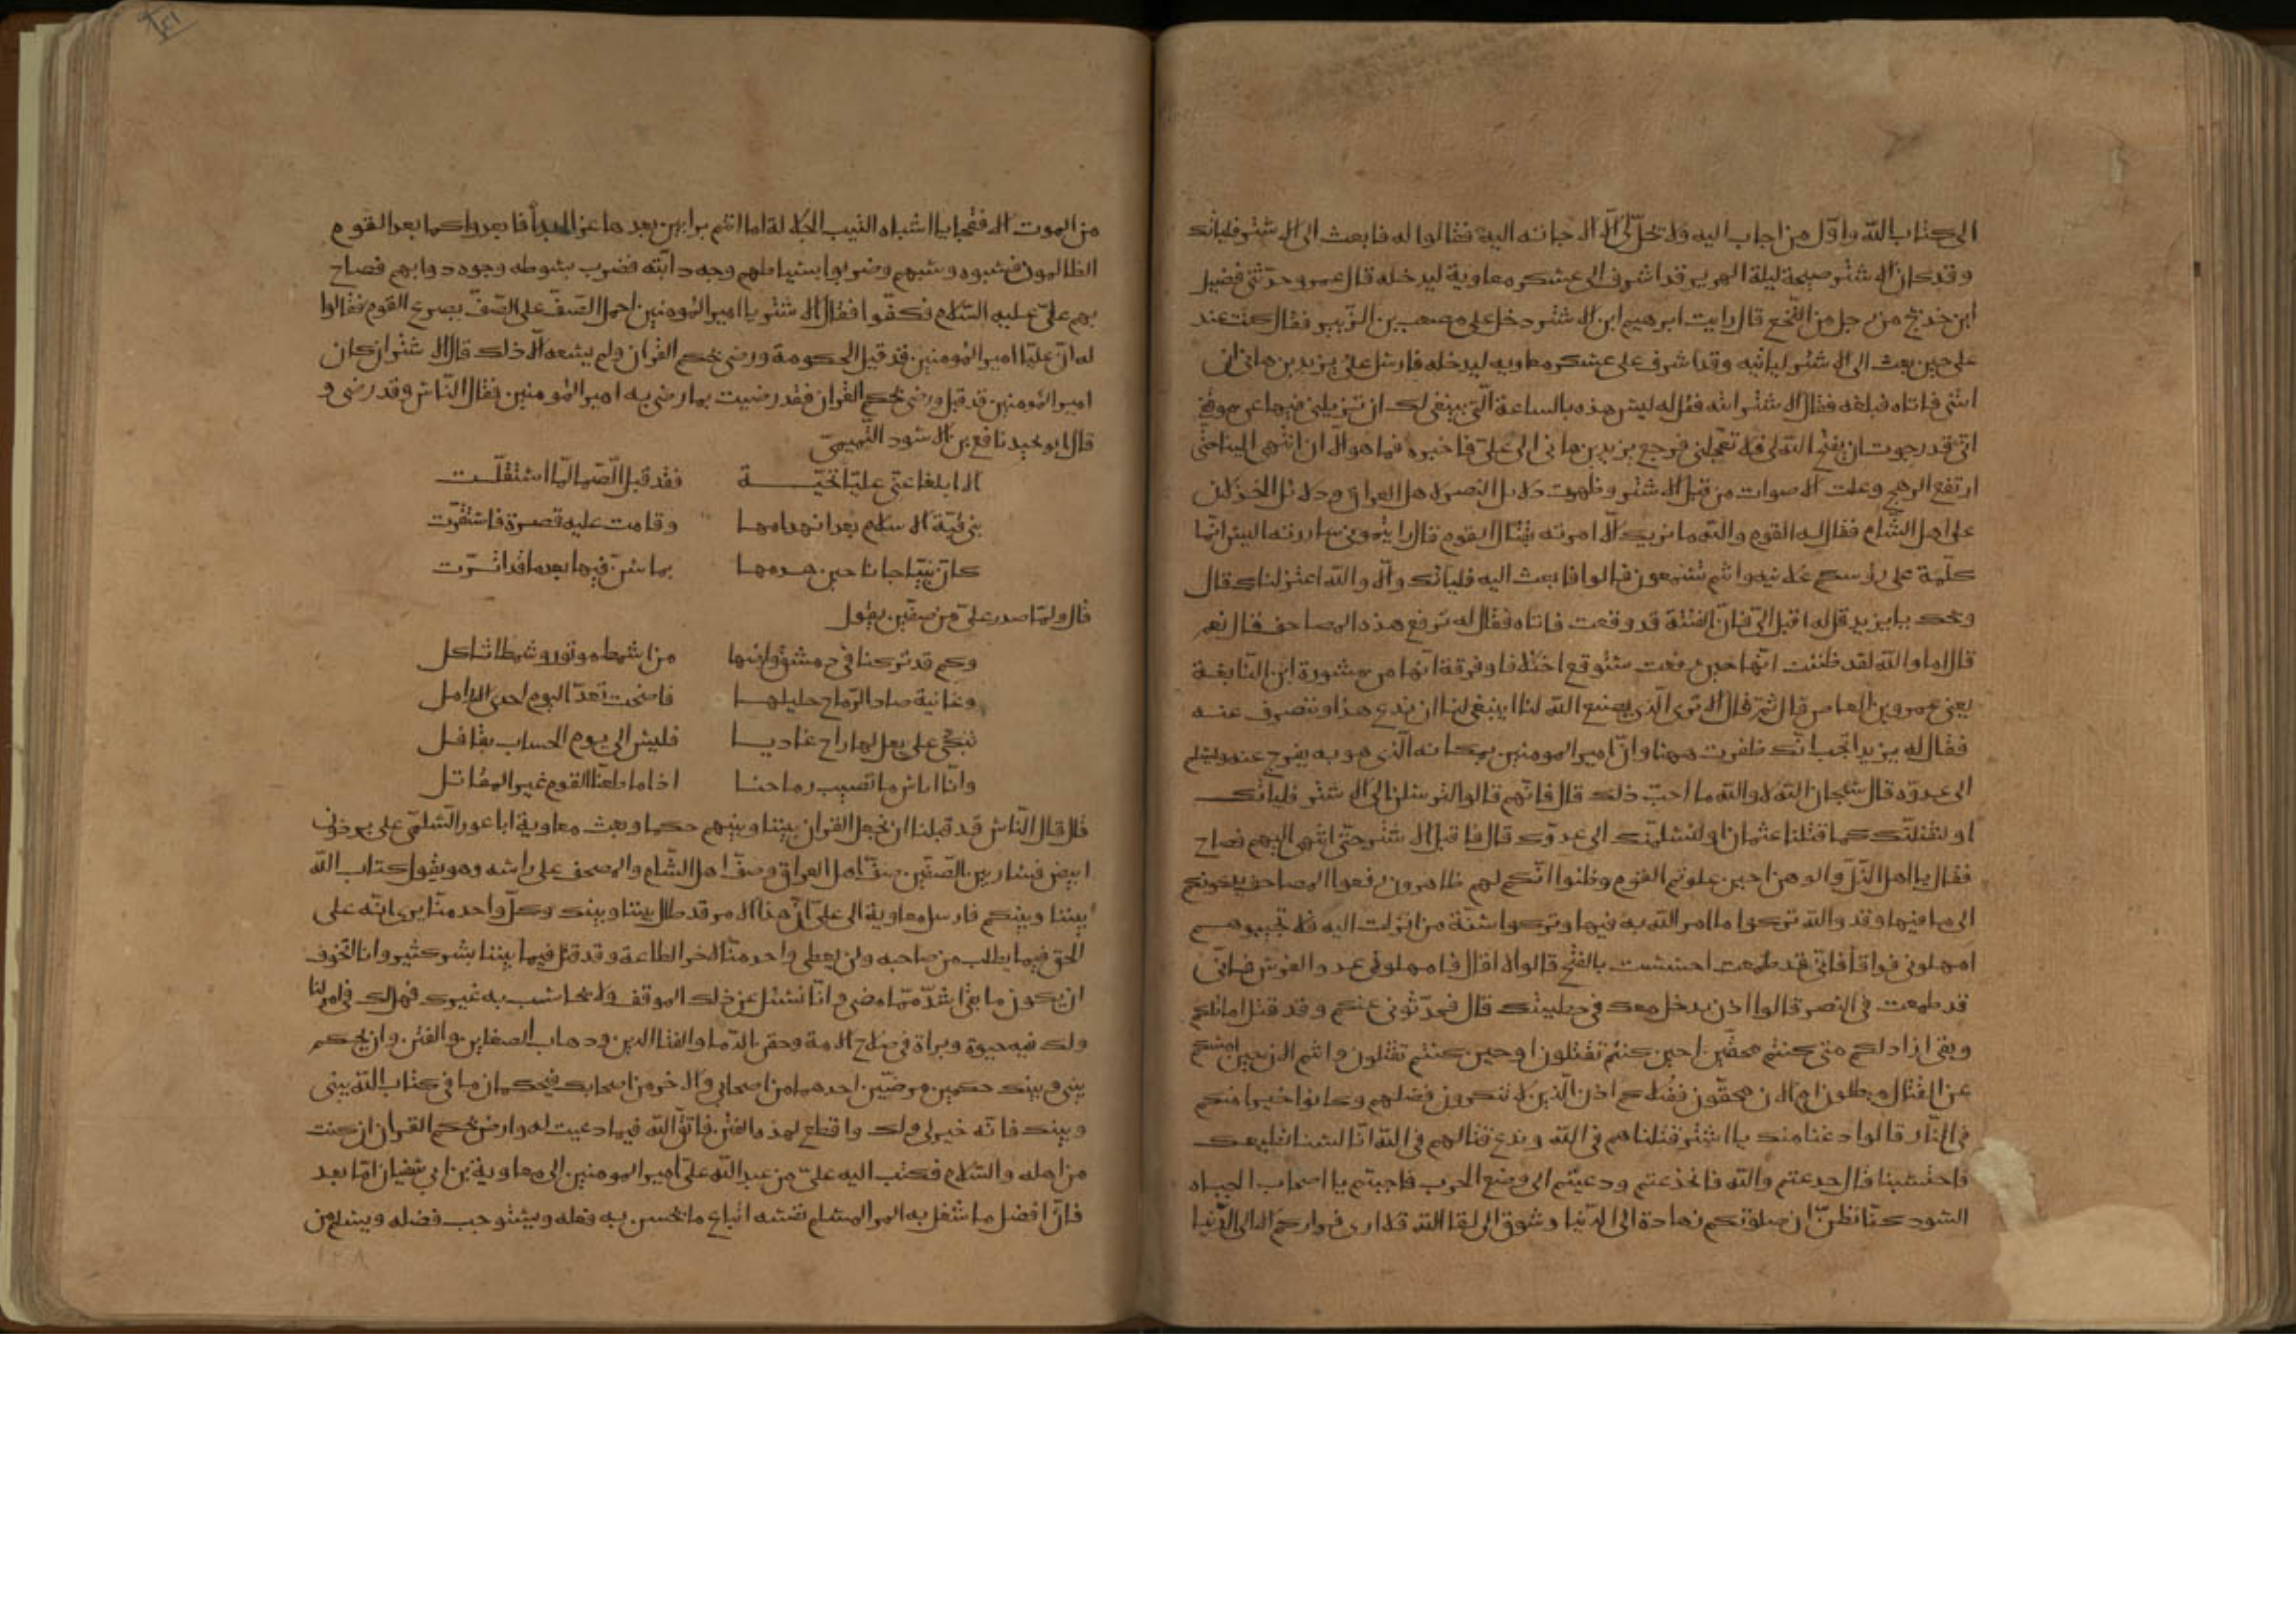 الى كتاب الله واول من اجاب اليه ولا تحل لى الا اجابته اليه فقالوا له فابعث الى الاشتر فليأتك
وقد كان الاشتر صبيحة ليلة الهرير قد اشرف الى عسكر معاوية ليدخله قال عمرو حدثنى فضيل
ابن خديج من رجل من النخع قال رايت ابرهيم ابن الاشتر دخل على مصعب بن الزبير فقال كنت عند
على حين بعث الى الاشتر لياتيه وقد اشرف على عسكر معاويه ليدخله فارسل على يزيد بن هانى ان
ائتنى فاتاه فبلغه فقال الاشتر ائته فقل له ليس هذه بالساعة التى ينبغى لك ان تزيلنى فيها عن موقفى
انى قد رجوت ان يفتح الله لى فلا تعجلنى فرجع يزيد بن هانى الى على فاخبره فما هو الا ان انتهى الينا حتى
ارتفع الرهج وعلت الاصوات من قبل الاشتر وظهرت دلائل النصر لاهل العراق ودلائل الخذلان
على اهل الشام فقال له القوم والله ما نريك الا امرته بقتال القوم قال رايتمونى ساررته اليس انما
كلمته على رؤسكم علانيه وانتم تسمعون قالوا فابعث اليه فليأتك والا والله اعتزلناك قال
ويحك يا يزيد قل له اقبل الى فان الفتنة قد وقعت فاتاه فقال له ترفع هذه المصاحف قال نعم
قال اما والله لقد ظننت انها حين رفعت ستوقع اختلافا وفرقة انها من مشورة ابن النابغة
يعنى عمرو بن العاص قال ثم قال الا ترى الذى يصنع الله لنا اينبغى لنا ان ندع هذا وننصرف عنه
فقال له يزيد اتحب انك ظفرت ههنا وان امير المومنين بمكانه الذى هو به يفرج عنه ويسلم
الى عدوه قال سبحان الله لا والله ما احب ذلك قال فانهم قالوا لترسلن الى الاشتر فليأتك
او لنقتلنك كما قتلنا عثمان او لنسلمنك الى عدوك قال فاقبل الاشتر حتى انتهى اليهم فصاح
فقال يا اهل الذل والوهن احين علوتم القوم وظنوا انكم لهم ظاهرون رفعوا المصاحف يدعونكم
الى ما فيها وقد والله تركوا ما امر الله به فيها وتركوا سنة من انزلت اليه فلا تجيبوهم
امهلونى فواقا فانى قد احسست بالفتح قالوا لا قال فامهلونى عدو الفرس فانى
قد طمعت فى النصر قالوا اذن ندخل معك فى خطيئتك قال فحدثونى عنكم وقد قتل اماثلكم
وبقى اراذلكم متى كنتم محقين احين كنتم تقتلون اوحين كنتم تقتلون وانتم الان حين امسكتم
عن القتال مبطلون ام الان محقون فقتلاكم اذن الذين لا تنكرون فضلهم وكانوا خيرا منكم
فى النار قالوا دعنا منك يا اشتر قتلناهم فى الله وندع قتالهم فى الله انا لسنا نطيعك
فاجتنبنا قال خدعتم والله فانخدعتم ودعيتم الى وضع الحرب فاجبتم يا اصحاب الجباه
السود كنا نظن ان صلوتكم زهادة الى الدنيا وشوق الى لقا الله فلا ارى فراركم الا الى الدنيا
من الموت الا فقبحا يا اشباه النيب الجلالة اما انتم برايين بعدها عزا ابدا فابعدوا كما بعد القوم
الظالمون فسبوه وسبهم وضربوا بسياطهم وجه دابته فضرب بسوطه وجوه دوابهم فصاح
بهم على عليه السلام فكفوا فقال الاشتر يا امير المومنين احمل الصف على الصف يصرع القوم فقالوا
له ان عليا امير المومنين قد قبل الحكومة ورضى بحكم القران ولم يسعه الا ذلك قال الاشتر ان كان
امير المومنين قد قبل ورضى بحكم القران فقد رضيت بما رضى به امير المومنين فقال الناس قد رضى و
قال ابو مجيد نافع بن الاسود التميمى
الا ابلغا عنى عليا تحية فقد قبل الصما لما استقلت
بنى قبة الاسلام بعد انهدامها وقامت عليه قصرة فاستقرت
كان نبيا جانا حين هدمها بما سن فيها بعد ما قد ابرت
قال ولما صدر على من صفين يقول
وكم قد تركنا فى دمشق وارضها من اشمط موتور وشمطا ثاكل
وغانية صاد الرماح حليلها فاضحت تعد اليوم احدى الارامل
تبكى على بعل لها راح غاديا فليس الى يوم الحساب بقافل
وانا اناس ما تصيب رماحنا اذا ما طعنا القوم غير المقاتل
قال قال الناس قد قبلنا ان نجعل القران بيننا وبينهم حكما وبعث معاوية ابا عور السلمى على برذون
ابيض فسار بين الصفين صف اهل العراق وصف اهل الشام والمصحف على راسه وهو يقول كتاب الله
بيننا وبينكم فارسل معاوية الى على ان هذا الامر قد طال بيننا وبينك وكل واحد منا يرى انه على
الحق فيما يطلب من صاحبه ولن يعطى واحد منا الاخر الطاعة وقد قتل فيما بيننا بشر كثير وانا اتخوف
ان يكون ما بقى اشد مما مضى وانا نسئل عن ذلك الموقف ولا يحاسب به غيرك فهل لك فى امر لنا
ولك فيه حيوة وبراة فى صلاح الامة وحقن الدما والفة الدين وذهاب الضغاين والفتن وان يحكم
بينى وبينك حكمين مرضيين احدهما من اصحابى والاخر من اصحابك فيحكمان ما فى كتاب الله بينى
وبينك فانه خير لى ولك واقطع لهذه الفتن فاتق الله فيما دعيت له وارض بحكم القران ان كنت
من اهله والسلام فكتب اليه على من عبد الله على امير المومنين الى معاوية بن ابى سفيان اما بعد
فان افضل ما شغل به المرا المسلم نفسه اتباع ما يحسن به فعله ويستوجب فضله ويسلم من